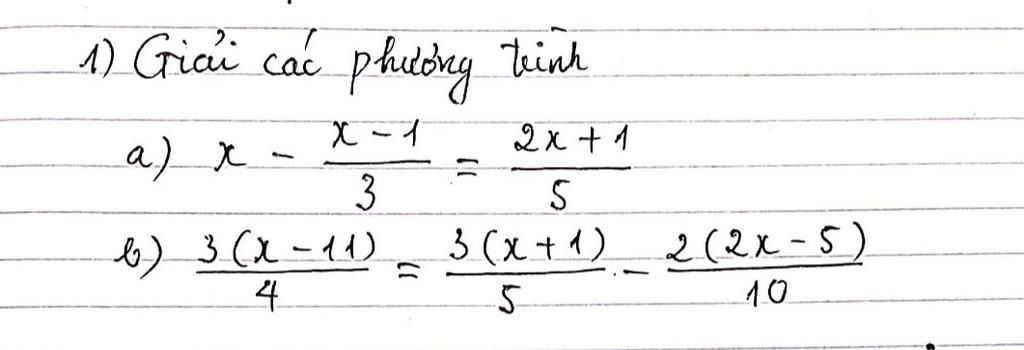 1) Giải các phương trình
a) x - \frac{x-1}{3} = \frac{2x+1}{5}
b) \frac{3(x-11)}{4} = \frac{3(x+1)}{5} - \frac{2(2x-5)}{10}